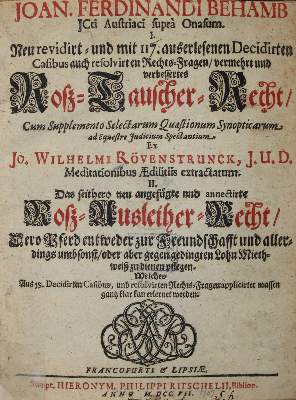 JOAN. FERDINANDI BEHAMB
JCti Austriaci suprà Onasum.
I.
Neu revidirt- und mit 117. auserlesenen Decidirten
Casibus auch resolvirten Rechts-Fragen/ vermehrt und
verbessertes
Roß-Tauscher-Recht/
Cum Supplemento Selectarum Quæstionum Synopticarum
ad Equestre Judicium Spectantium
Ex
JO. WILHELMI RÖVENSTRUNCK, J.U.D.
Meditationibus Ædilitiis extractarum.
II.
Das seithero neu angefügte und annectirte
Roß-Ausleiher-Recht/
Dero Pferd entweder zur Freundschafft und aller-
dings umbsonst/oder aber gegen gedingten Lohn Mieth-
weiß zu dienen pflegen.
Welches
Aus 59. Decidirten Casibus, und resolvirten Rechts-Fragen applicirter massen
gantz klar kan erlernet werden.
FRANCOFURTI & LIPSIÆ,
Sumpt. HIERONYM. PHILIPPI RITSCHELII, Bibliop.
ANNO M. DCC. VII.